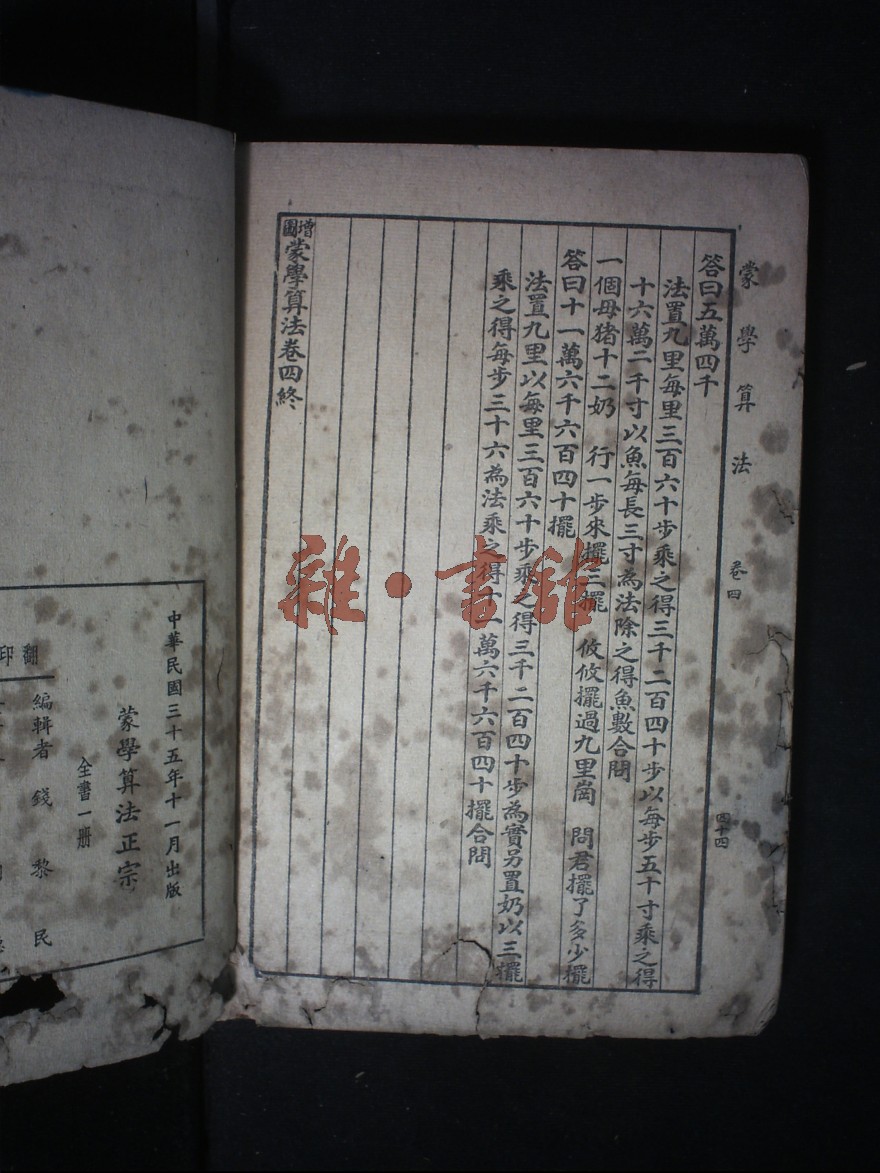 蒙學算法 卷四 四十四
答曰五萬四千
法置九里每里三百六十步乘之得三千二百四十步以每步五十寸乘之得
十六萬二千寸以魚每長三寸為法除之得魚數合問
一個母猪十二奶 行一步來擺三擺 攸攸擺過九里崗 問君擺了多少擺
答曰十一萬六千六百四十擺
法置九里以每里三百六十步乘之得三千二百四十步為實另置奶以三擺
乘之得每步三十六為法乘之得十一萬六千六百四十擺合問
增圖蒙學算法卷四終
中華民國三十五年十一月出版
蒙學算法正宗
全書一册
編輯者 錢黎民
翻印
雜·書館